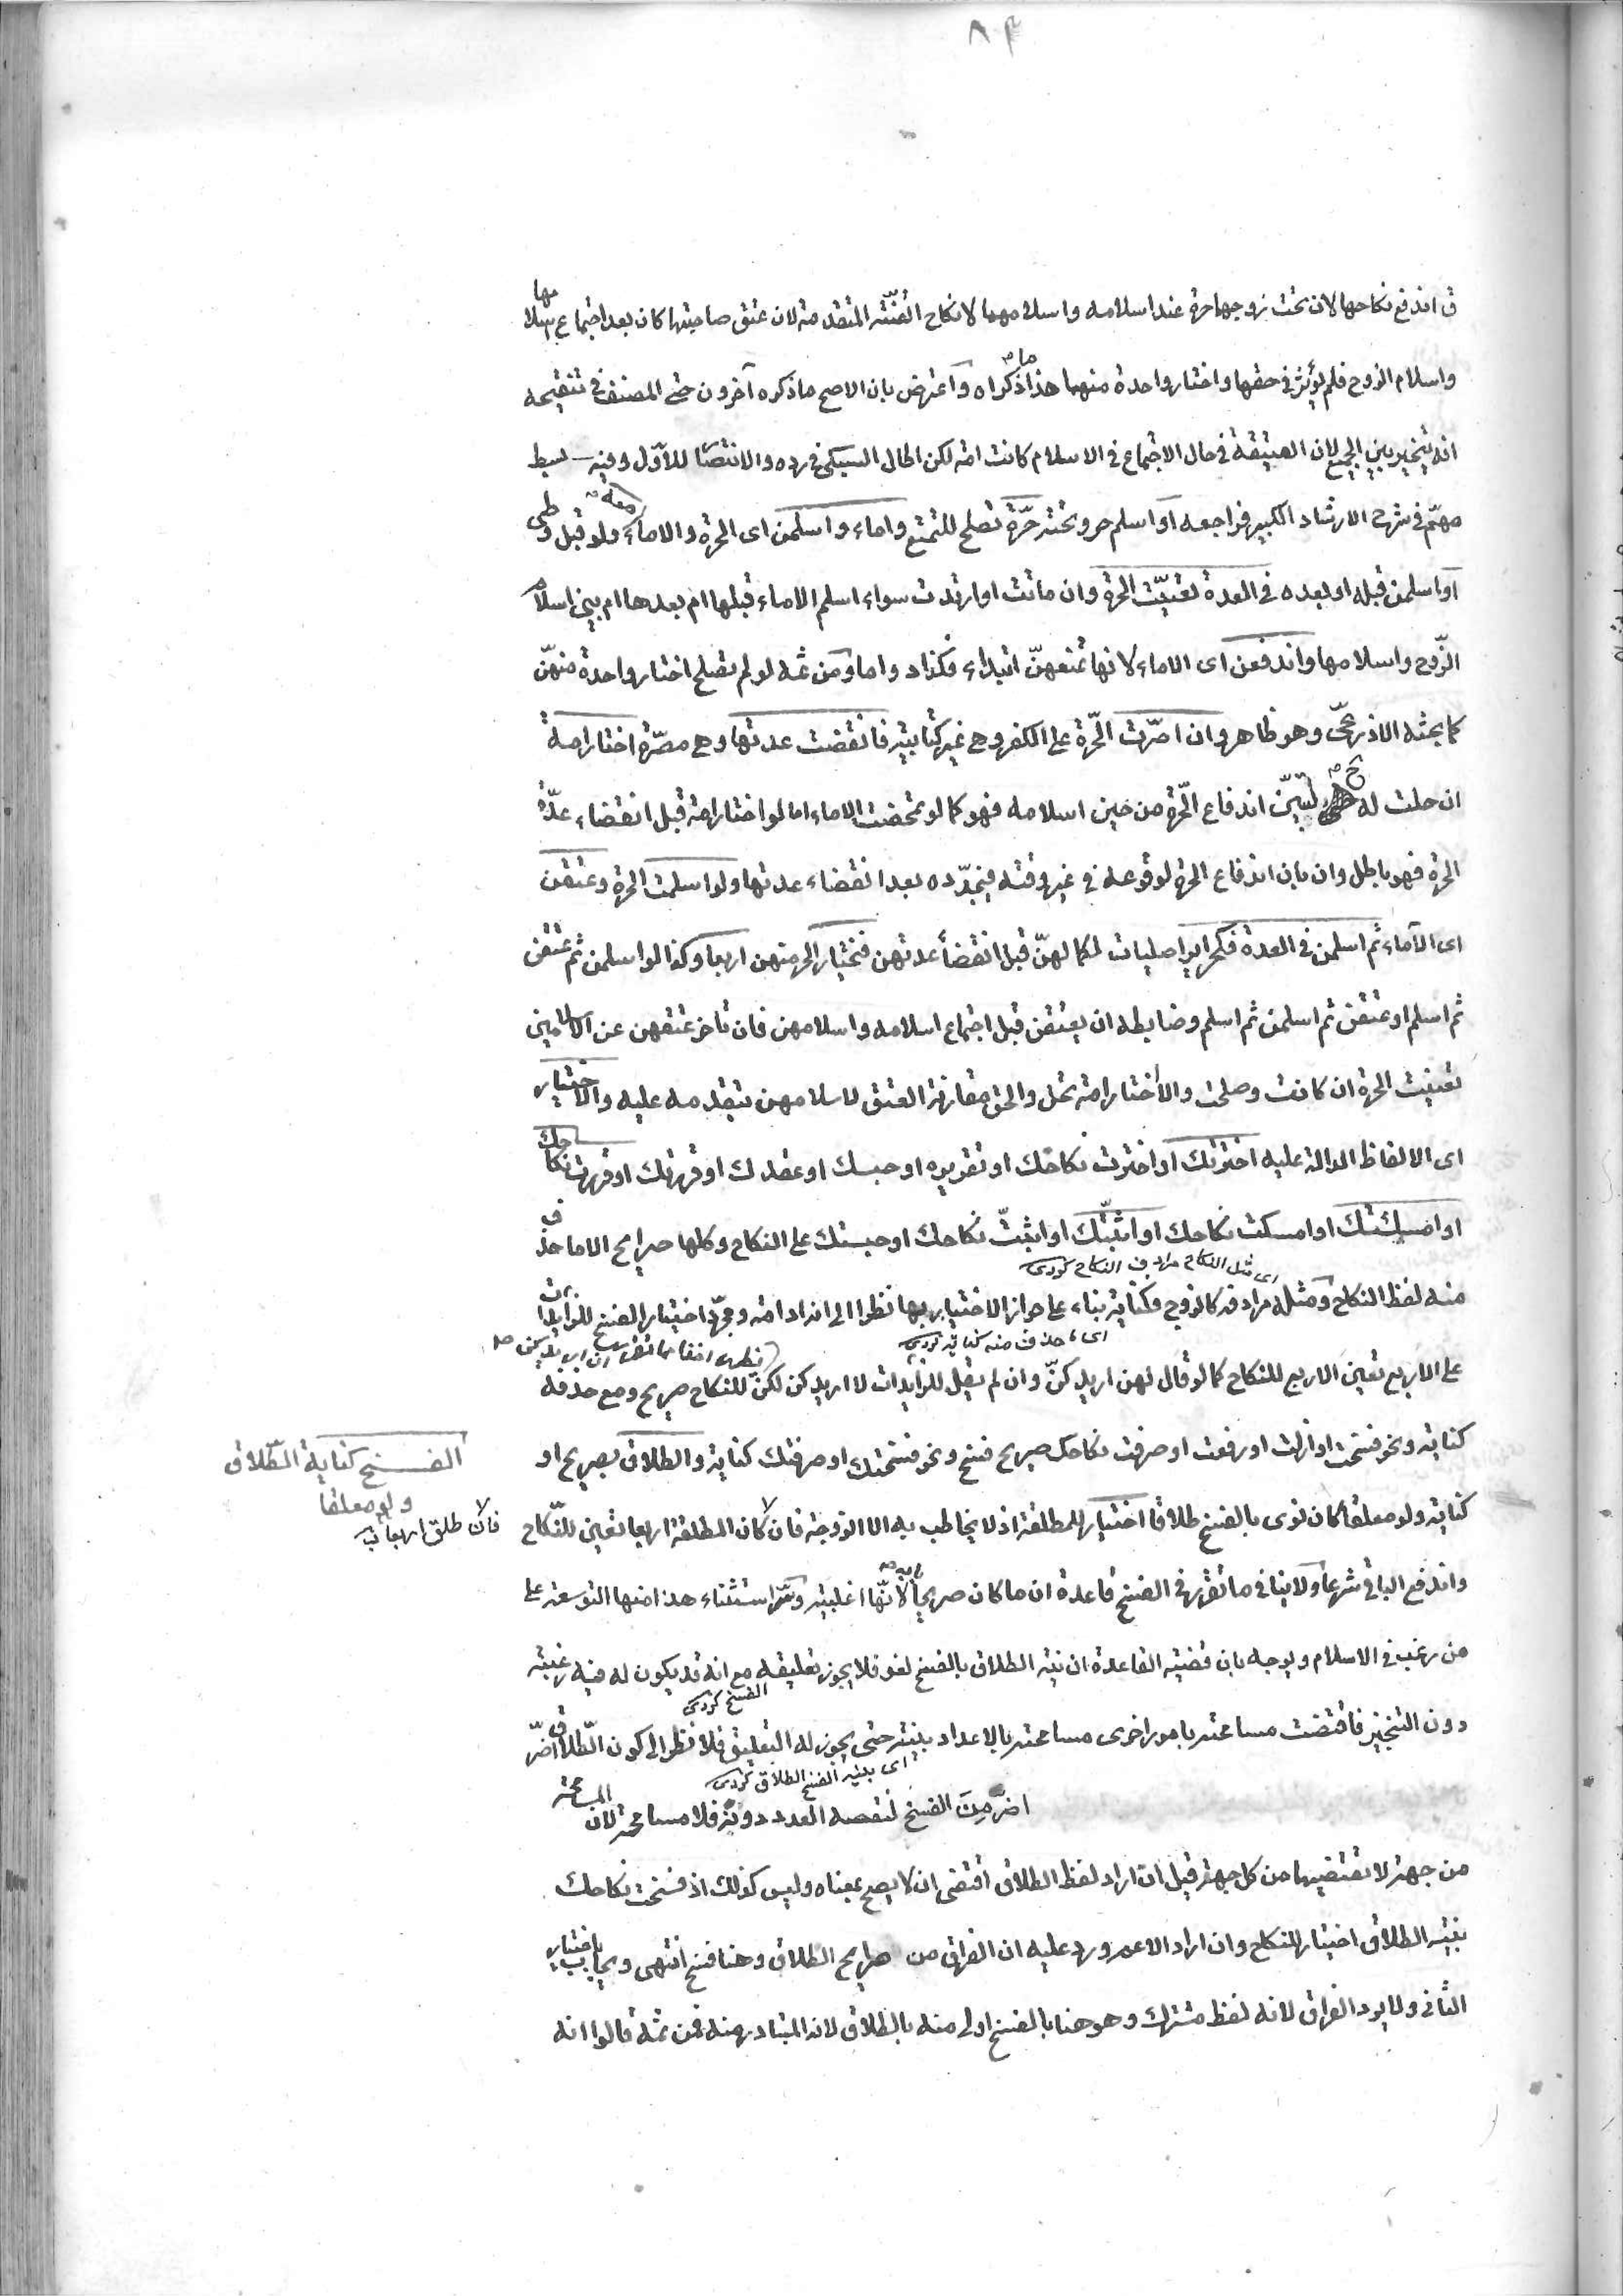 ٨٣
ق اندفع نكاحها لان تحت زوجها حرة عند اسلامه واسلامهما لا نكاح القنة المتقدمة لان عتق صاحبتها كان بعد اجتماع اسلامها
واسلام الزوج فلم يؤثر في حقها واختار واحدة منهما هذا ما ذكراه واعترض بان الاصح ما ذكره آخرون حتى المصنف في تنقيحه
انه يتخير بين الجميع لان العتيقة في حال الاجتماع في الاسلام كانت امة لكن اطال السبكي في رده والانتصار للاول وفيه بسط
مهم في شرح الارشاد الكبير فراجعه او اسلم حر وتحته حرة تصلح للتمتع واماء واسلمن اى الحرة والاماء معه ولو قبل وطى
او اسلمن قبله او بعده في العدة تعينت الحرة وان ماتت او ارتدت سواء اسلم الاماء قبلها ام بعدها ام بين اسلام
الزوج واسلامها واندفعن اى الاماء لانها تمنعهن ابتداء فكذا دواما ومن ثمه لو لم تصلح اختار واحدة منهن
كما بحثه الاذرعى وهو ظاهر وان اصرت الحرة على الكفر وهى غير كتابية فانقضت عدتها وهى مصرة اختار امة
ان حلت له ح لتبين اندفاع الحرة من حين اسلامه فهو كما لو تمحضت الاماء اما لو اختار امة قبل انقضاء عدة
الحرة فهو باطل وان بان اندفاع الحرة لوقوعه في غير وقته فيجدده بعد انقضاء عدتها ولو اسلمت الحرة وعتقن
اى الاماء ثم اسلمن في العدة فكحرائر اصليات لكمالهن قبل انقضاء عدتهن فيختار الحر منهن اربعا وكذا لو اسلمن ثم عتقن
ثم اسلم او عتقن ثم اسلمن ثم اسلم وضابطه ان يعتقن قبل اجتماع اسلامه واسلامهن فان تاخر عتقهن عن الاسلامين
تعينت الحرة ان كانت وصلحت والا اختار امة تحل والحق مقارنة العتق لاسلامهن بتقدمه عليه والاختيار
اى الالفاظ الدالة عليه اخترتك او اخترت نكاحك او تقريره او حبسك او عقدك او قررتك او قررت نكاحك
او امسكتك او امسكت نكاحك او اثبتك او اثبت نكاحك او حبستك على النكاح وكلها صرايح الا ما حذف
اى مثل النكاح مرادف النكاح كردى
منه لفظ النكاح ومثله مرادفه كالزوج فكناية بناء على جواز الاختيار بها نظرا الى انه ادامة ومجرد اختيار الفسخ للزايدات
اى ما حذف منه كناية كردى
على الاربع تعين الاربع للنكاح كما لو قال لهن اريدكن وان لم يقل للزايدات لا اريدكن لكن للنكاح صريح ومع حذفه
كناية ونحو فسخت او ازلت او رفعت او صرفت نكاحك صريح فسخ ونحو فسختك او صرفتك كناية والطلاق بصريح او
الفسخ كناية الطلاق ولو معلقا
كناية ولو معلقا كان نوى بالفسخ طلاقا اختيار للمطلقة اذ لا يخاطب به الا الزوجة فان كان المطلقة اربعا تعين للنكاح
فان طلق اربعا
واندفع الباقي شرعا ولا ينافي ما تقرر في الفسخ قاعدة ان ما كان صريحا في بابه لانها اغلبية وسر استثناء هذا منها التوسعة على
من رغب في الاسلام ويوجه بان قضية القاعدة ان نية الطلاق بالفسخ لغو فلا يجوز تعليقه مع انه قد يكون له فيه رغبة
الفسخ كردى
دون التنجيز فاقتضت مسامحته بامور اخرى مسامحته بالاعداد بنيته حتى يجوز له التعليق فلا نظر الى كون الطلاق اضر
اى بنية الفسخ الطلاق كردى
اضر من الفسخ لنقصه العدد دونه فلا مسامحة لان المسامحة
من جهة لا تقتضيها من كل جهة قيل ان اراد لفظ الطلاق اقتضى ان لا يصح بمعناه وليس كذلك اذ فسخت نكاحك
بنية الطلاق اختيار للنكاح وان اراد الاعم ورد عليه ان الفراق من صرايح الطلاق وهنا فسخ انتهى ويجاب باختيار
الثانى ولا يرد الفراق لانه لفظ مشترك وهو هنا بالفسخ اولى منه بالطلاق لانه المتبادر منه فمن ثمه قالوا انه